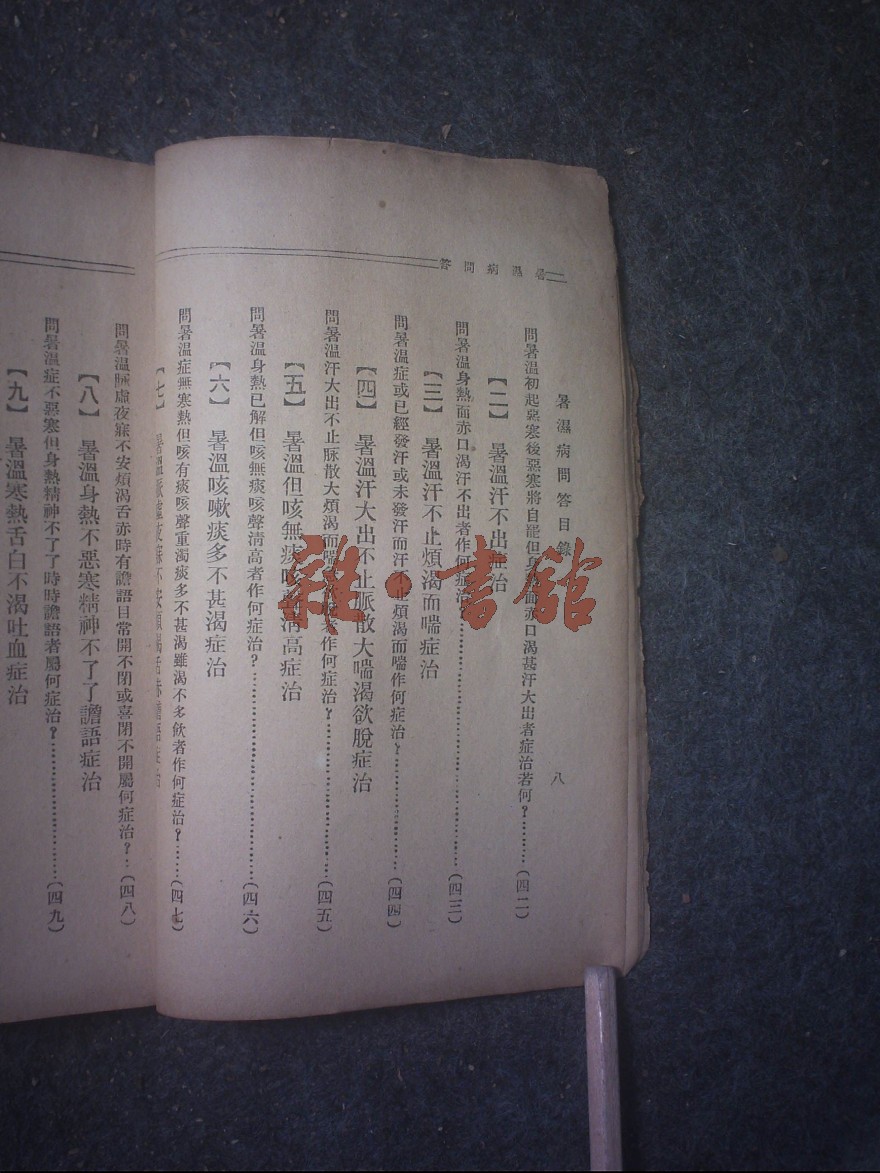 暑濕病問答
暑濕病問答目錄
八
問暑溫初起惡寒後惡寒將自罷但身面赤口渴甚汗大出者症治若何?…………(四二)
【二】 暑溫汗不出症治
問暑溫身熱面赤口渴汗不出者作何症治?…………(四三)
【三】 暑溫汗不止煩渴而喘症治
問暑溫症或已經發汗或未發汗而汗不止煩渴而喘作何症治?…………(四四)
【四】 暑溫汗大出不止脈散大喘渴欲脫症治
問暑溫汗大出不止脈散大煩渴而喘作何症治?…………(四五)
【五】 暑溫但咳無痰咳聲清高症治
問暑溫身熱已解但咳無痰咳聲清高者作何症治?…………(四六)
【六】 暑溫咳嗽痰多不甚渴症治
問暑溫症無寒熱但咳有痰咳聲重濁痰多不甚渴雖渴不多飲者作何症治?……(四七)
【七】 暑溫脈虛夜寐不安煩渴舌赤譫語症治
問暑溫脈虛夜寐不安煩渴舌赤時有譫語目常開不閉或喜閉不開屬何症治?…(四八)
【八】 暑溫身熱不惡寒精神不了了譫語症治
問暑溫症不惡寒但身熱精神不了了時時譫語者屬何症治?…………(四九)
【九】 暑溫寒熱舌白不渴吐血症治
雜·書館